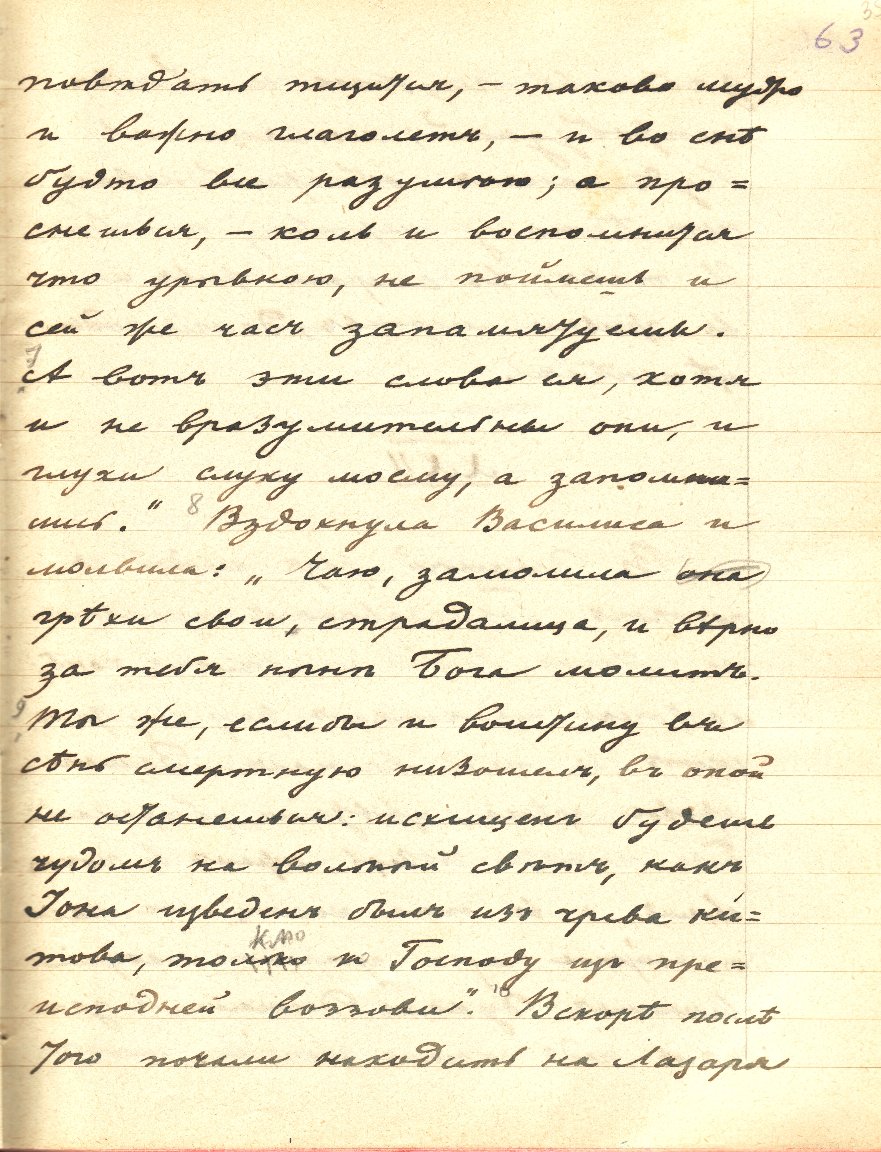 63
повѣдать тщится, – таково мудро
и важно глаголетъ, – и во снѣ
будто все разумѣю; а про=
снешься, – коль и вспомнится
что урывкою, не поймешь и
сей же часъ запамятуешь.
7 А вотъ эти слова ея, хотя
и не вразумительны они, и
глухи слуху моему, а запомни=
лись." 8 Вздохнула Василиса и
молвила: „Чаю, замолила она
грѣхи свои, страдалица, и вѣрно
за тебя нынѣ Бога молитъ.
9 Ты же, еслибы и воистину въ
сѣнь смертную низошелъ, въ оной
не останешься: исхищенъ будешь
чудомъ на вольный свѣтъ, какъ
Іона изведенъ былъ изъ чрева ки=
това, только къ Господу изъ пре=
исподней воззови". 10 Вскорѣ послѣ
того почали находить на Лазаря